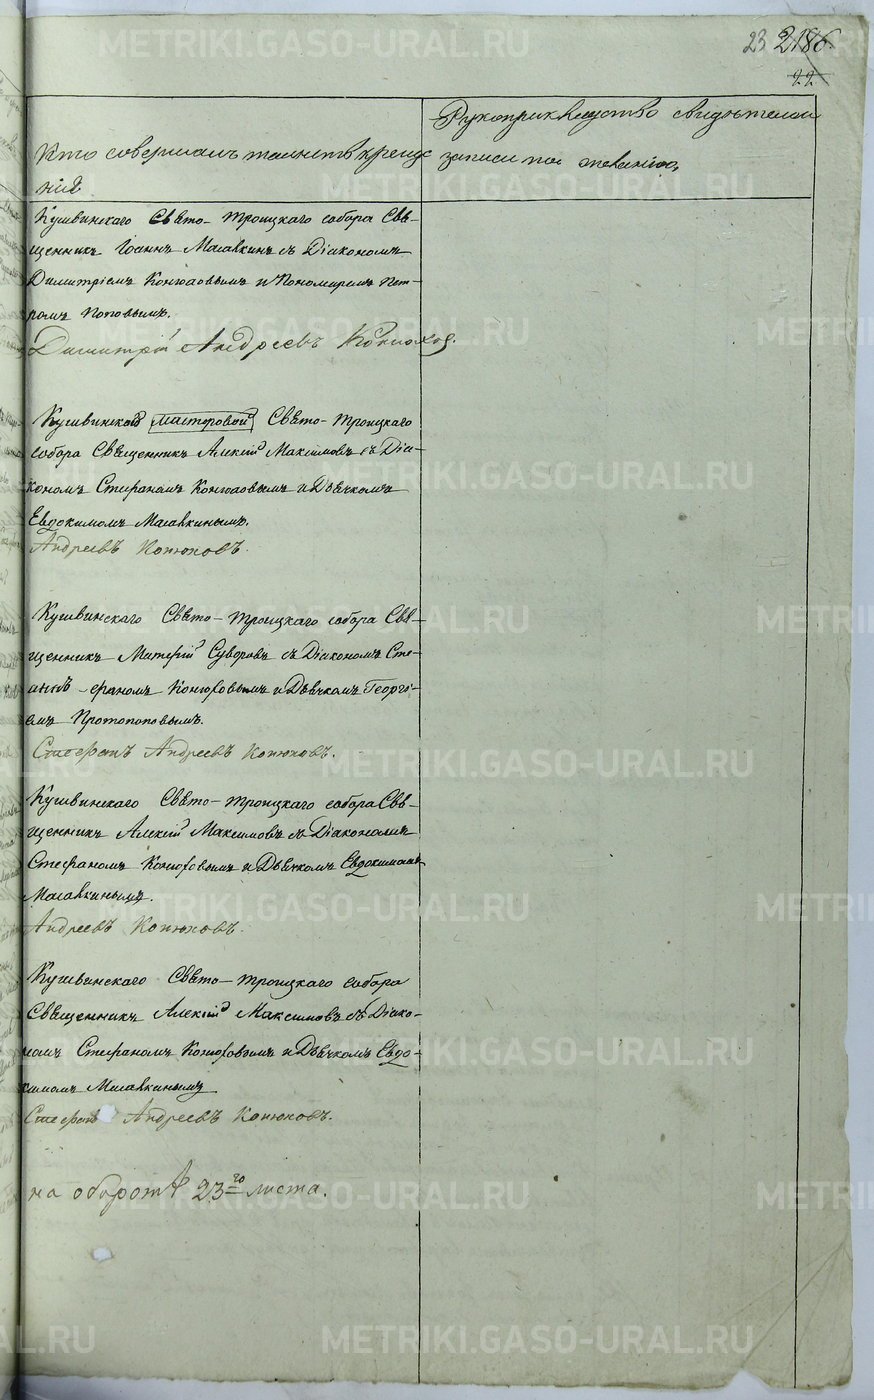 23 2186.
22
Рукоприкладство свидѣтелей
Кто совершалъ таинство креще- записи по желанію,
нія.
Кушвинскаго Свято-Троицкаго собора Свя-
щенникъ Іоаннъ Масавкинъ съ Діакономъ
Димитріемъ Конюховымъ и Пономаремъ Пет-
ромъ Поповымъ.
Димитрій Андреевъ Конюховъ.
Кушвинской мастеровой Свято-Троицкаго
собора Священникъ Алексій Максимовъ съ Діа-
кономъ Стефаномъ Конюховымъ и Дьячкомъ
Евдокимомъ Масавкинымъ.
Андреевъ Конюховъ.
Кушвинскаго Свято-Троицкаго собора Свя-
щенникъ Суворовъ съ Діакономъ Сте-
фаномъ Конюховымъ и Дьячкомъ Георгі-
емъ Протопоповымъ.
Стефанъ Андреевъ Конюховъ.
Кушвинскаго Свято-Троицкаго собора Свя-
щенникъ Алексій Максимовъ съ Діакономъ
Стефаномъ Конюховымъ и Дьячкомъ Евдокимомъ
Масавкинымъ.
Андреевъ Конюховъ.
Кушвинскаго Свято-Троицкаго собора
Священникъ Алексій Максимовъ съ Діако-
номъ Стефаномъ Конюховымъ и Дьячкомъ Евдо-
кимомъ Масавкинымъ
Стефанъ Андреевъ Конюховъ.
на оборотѣ 23го листа.
METRIKI.GASO-URAL.RU